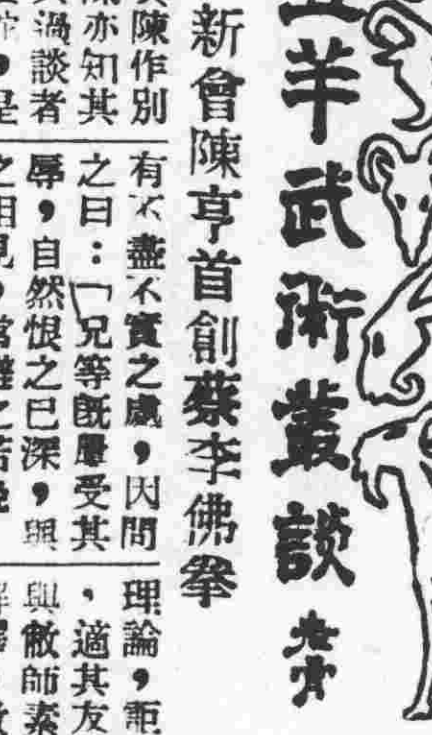 五羊武術叢談
新會陳亨首創蔡李佛拳
陳作別
亦知其
過談者
，是
有不盡不實之處，因問
之曰：「兄等既屢受其
辱，自然恨之已深，與
之相見，
理論，詎
，適其友
與敝師素